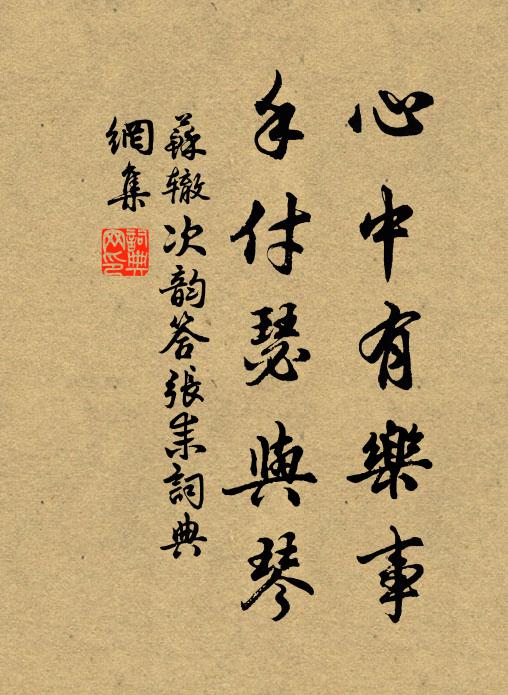 心中有樂事
手付瑟與琴
蘇辙次韵答張耒詞典
網集
詞典
网印